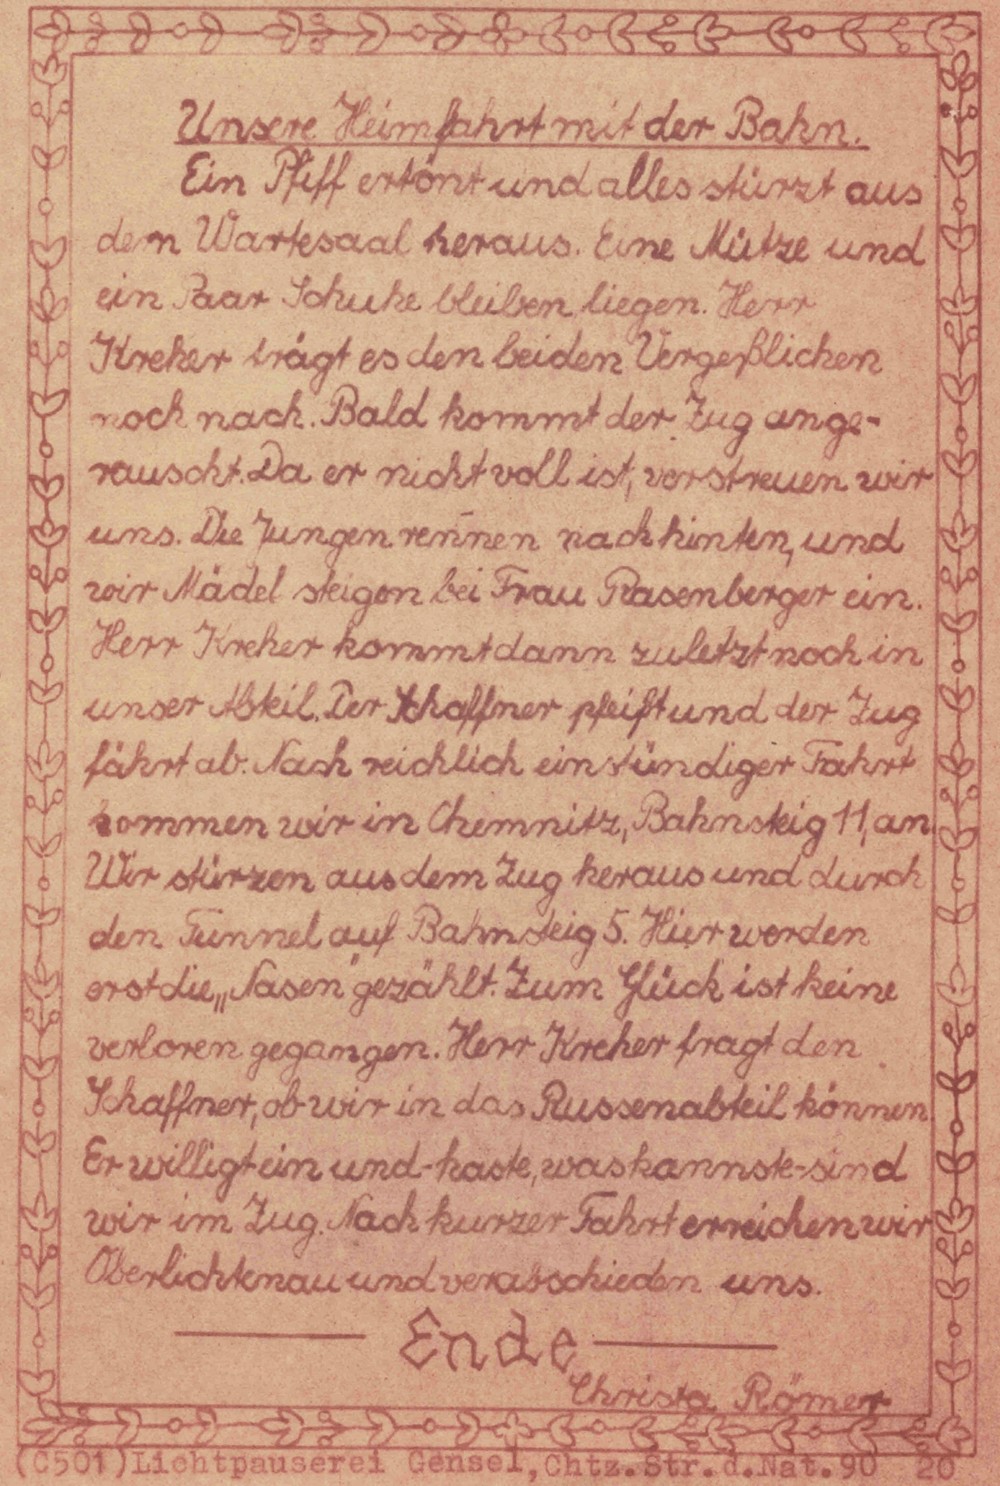 Unsere Heimfahrt mit der Bahn.
Ein Pfiff ertönt und alles stürzt aus
dem Wartesaal heraus. Eine Mütze und
ein Paar Schuhe bleiben liegen. Herr
Kreher trägt es den beiden Vergeßlichen
noch nach. Bald kommt der Zug ange-
rauscht. Da er nicht voll ist, verstreuen wir
uns. Die Jungen rennen nach hinten, und
wir Mädel steigen bei Frau Rasenberger ein.
Herr Kreher kommt dann zuletzt noch in
unser Abteil. Der Schaffner pfeift und der Zug
fährt ab. Nach reichlich einstündiger Fahrt
kommen wir in Chemnitz, Bahnsteig 11, an.
Wir stürzen aus dem Zug heraus und durch
den Tunnel auf Bahnsteig 5. Hier werden
erst die „Nasen" gezählt. Zum Glück ist keine
verloren gegangen. Herr Kreher fragt den
Schaffner, ob wir in das Russenabteil können.
Er willigt ein und-haste, was kannste-sind
wir im Zug. Nach kurzer Fahrt erreichen wir
Oberlichtenau und verabschieden uns.
Ende
Christa Römer
(C501)Lichtpauserei Gensel,Chtz.Str.d.Nat.90 20